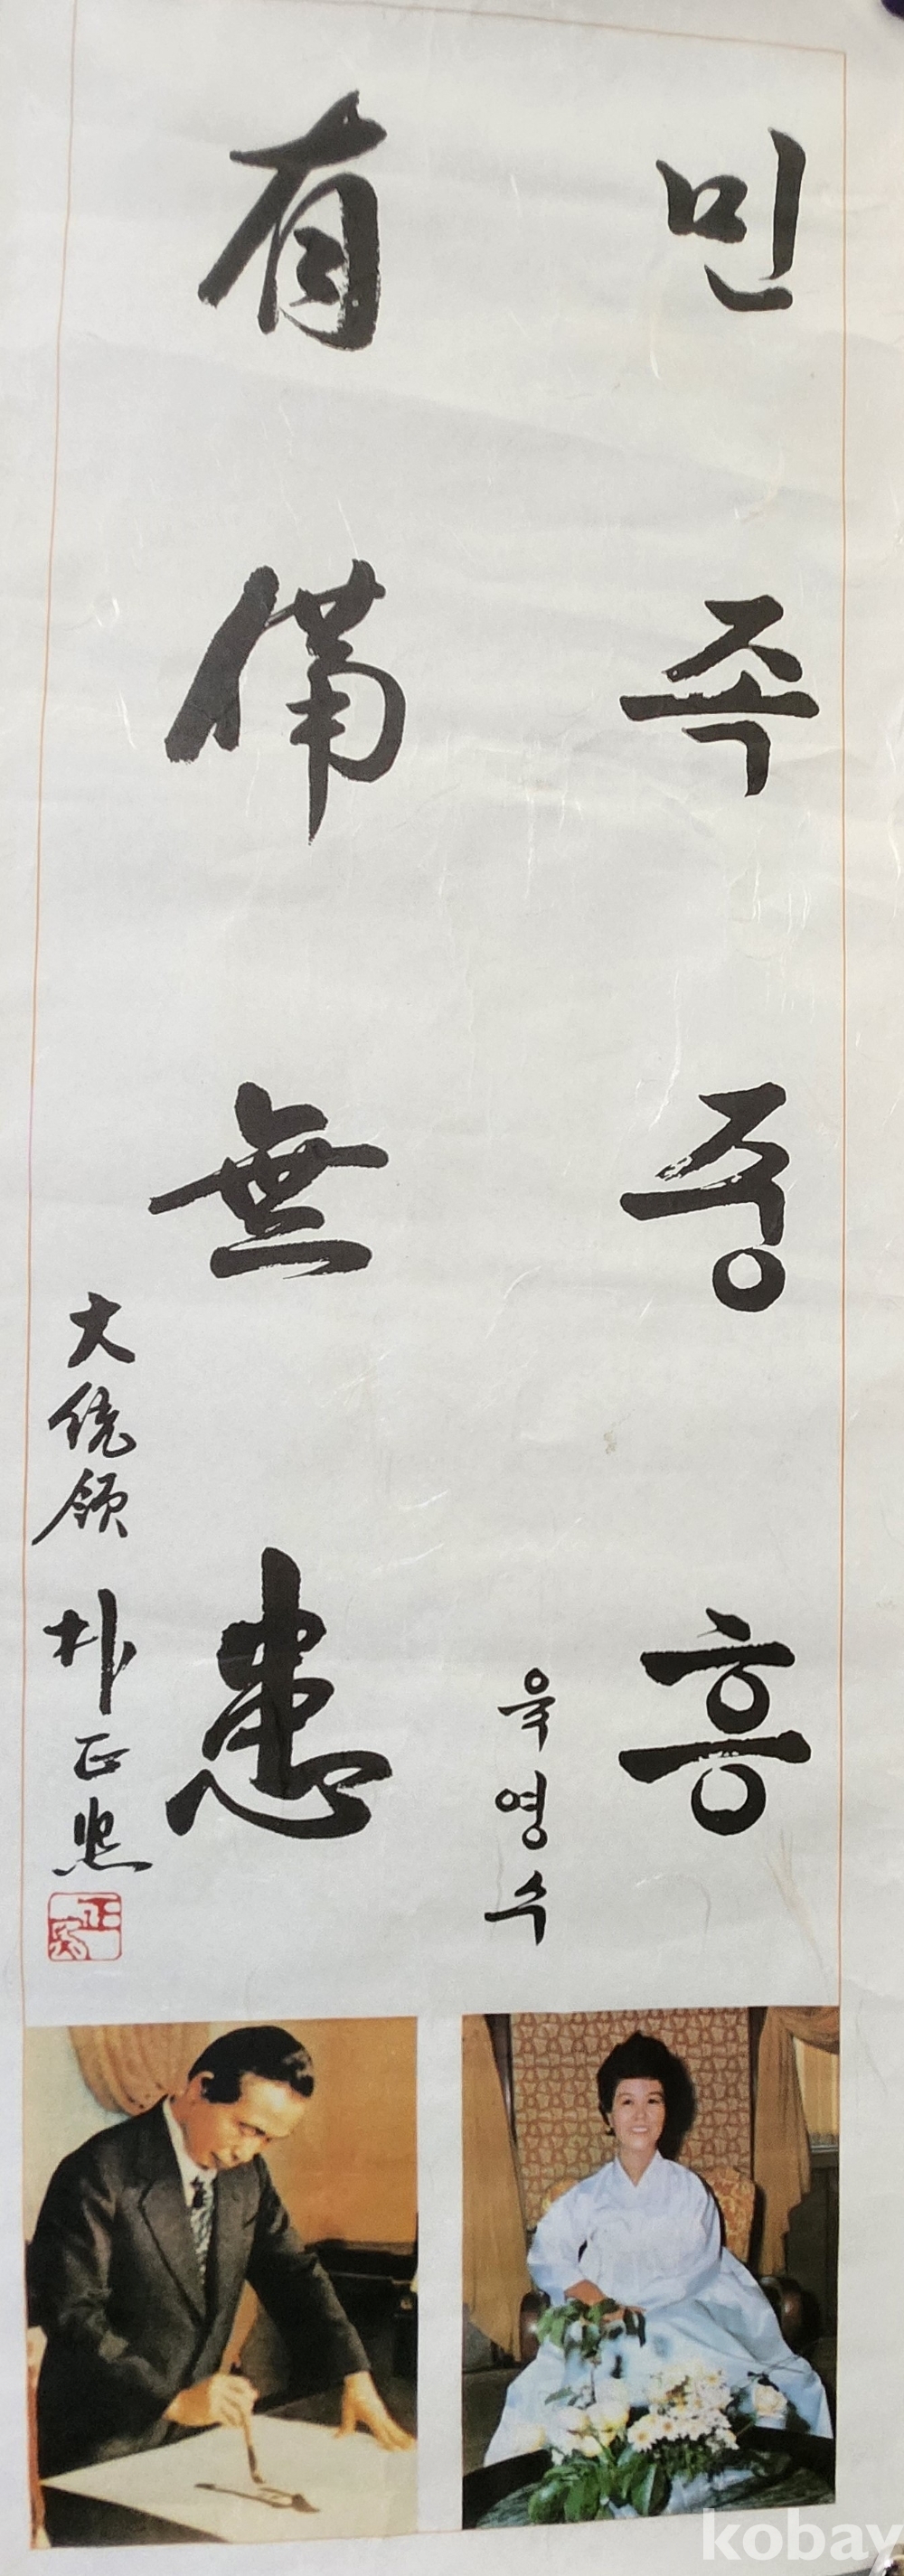 민족중흥
육영수
有備無患
大統領 朴正熙
kobay